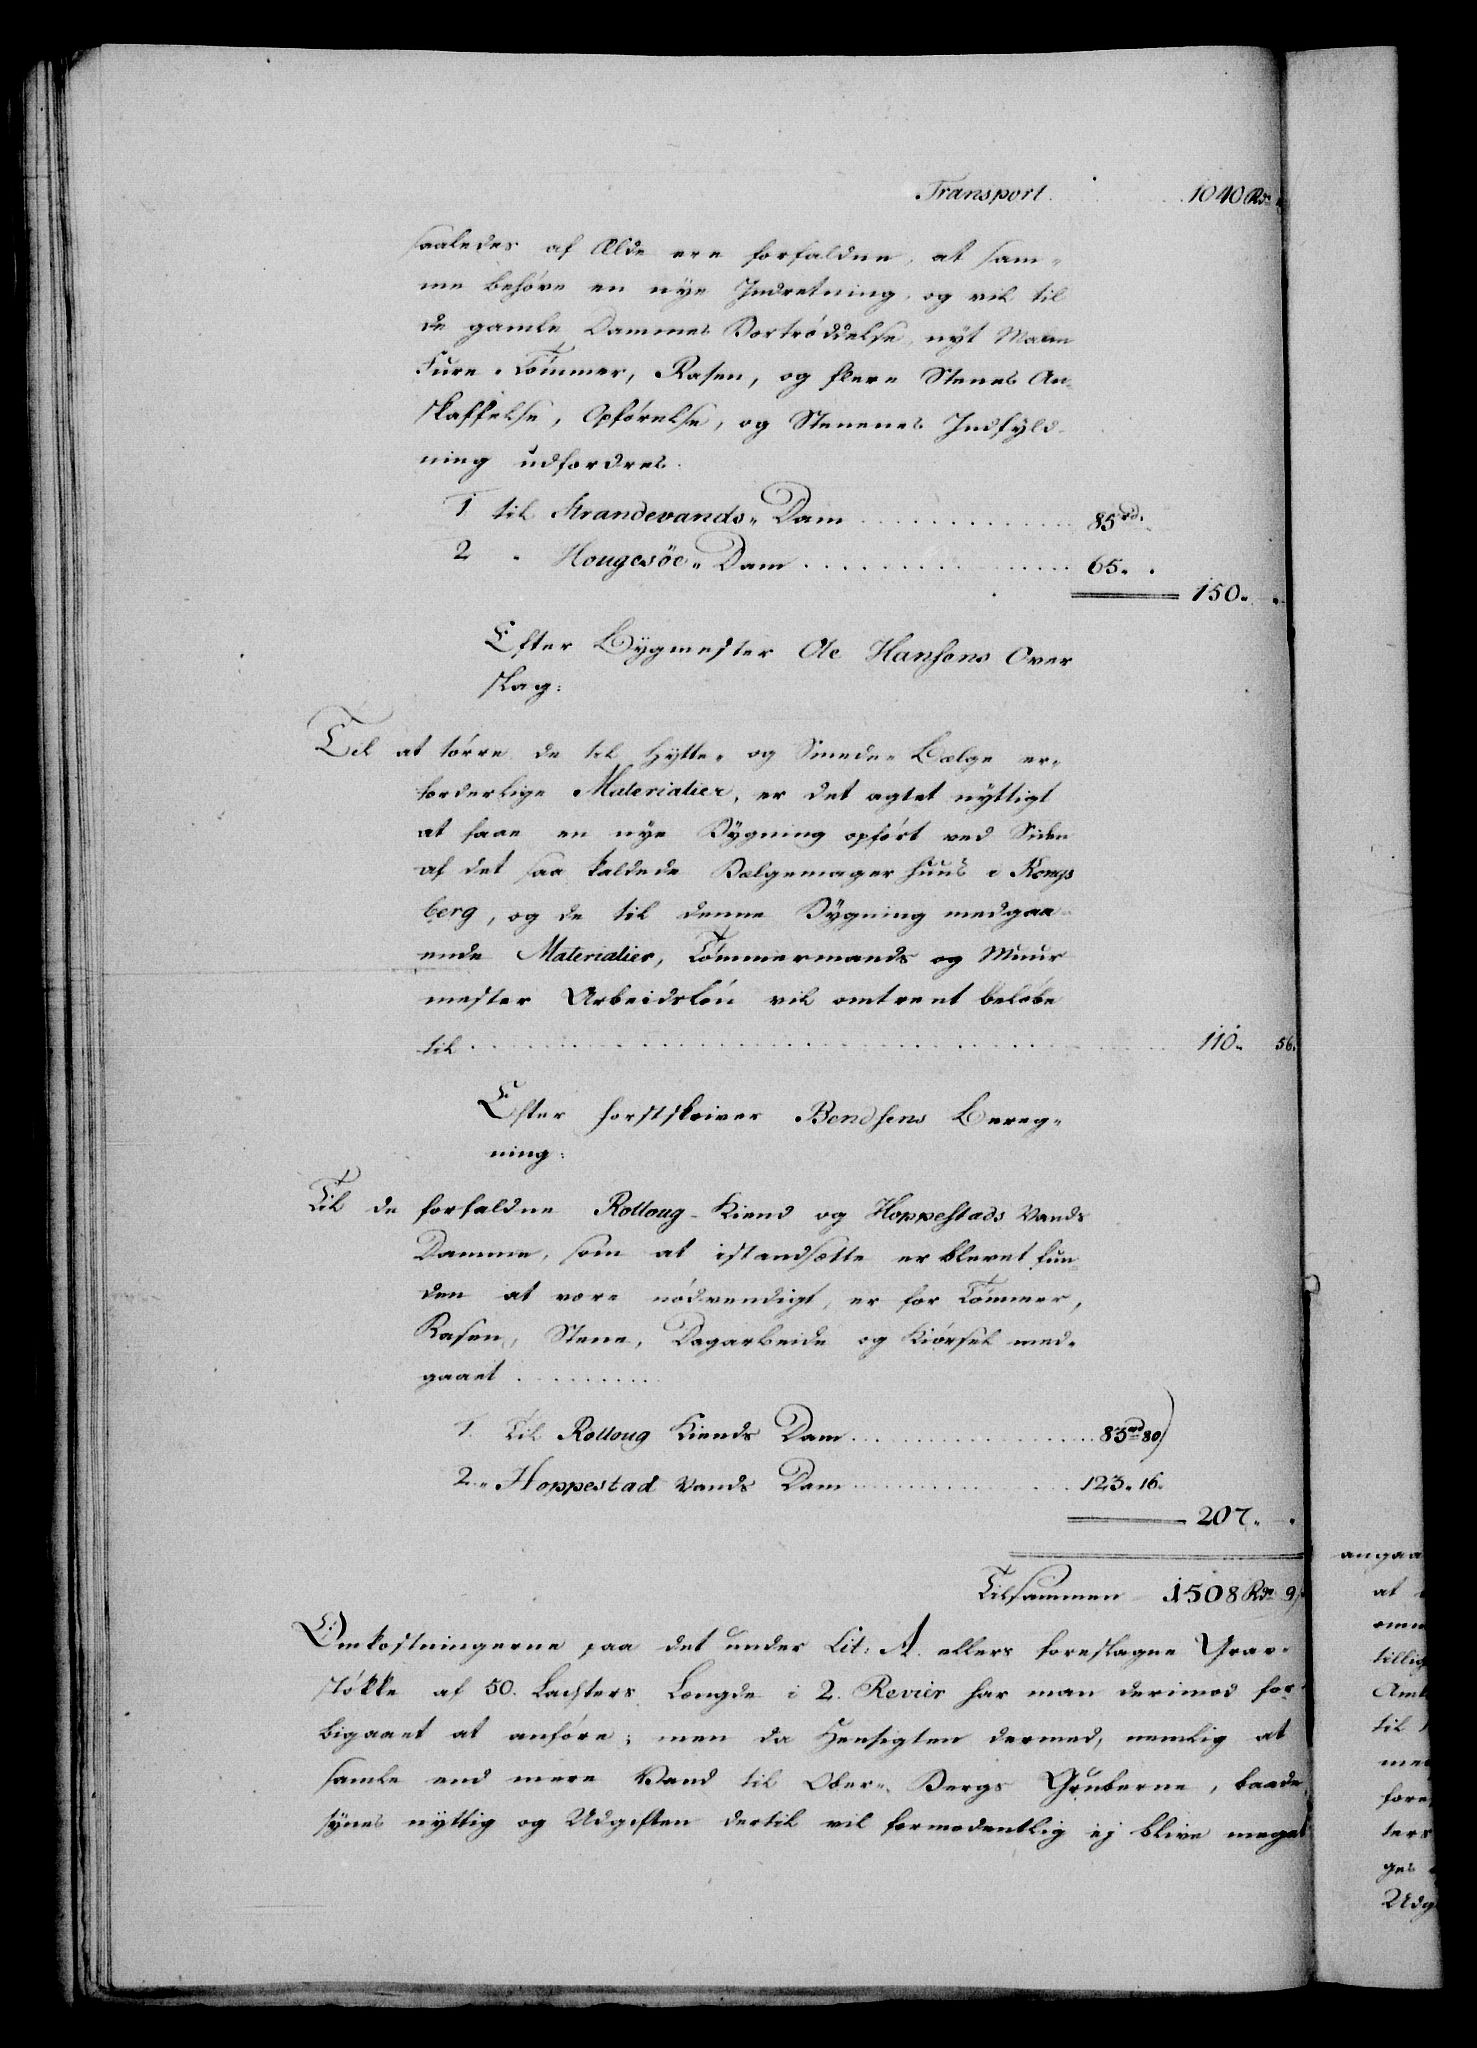 Transport . . . . . . 1040 Rdr
saaledes af Ælde ere forfaldne, at sam-
me behöve en nye Indretning, og vil til
de gamle Dammes Bortröddelse, nyt Malm
Fure-Tömmer, Rasen, og flere Stenes An-
skaffelse, Opförelse, og Stenenes Indfyld-
ning udfordres.
1. til Strandevands-Dam . . . . . . 85 rd.
2 " Hougesöe-Dam . . . . . . 65. "
150. "
Efter Bÿgmester Ole Hansens Over
slag:
Til at törre de til Hytte- og Smede-Bælge er-
forderlige Materialier, er det agtet nyttigt
at faae en nye Bÿgning opfört ved Siden
af det saa kaldede Bælgemager Huus i Kongs
berg, og de til denne Bÿgning medgaa-
ende Materialier, Tömmermands og Muur
mester Arbeidslön vil omtrent belöbe
til . . . . . . 110. 56.
Efter Forstskriver Bendsens Bereg-
ning:
Til de forfaldne Rolloug-Kiend og Hoppestads Vands
Damme, som at istandsætte er blevet fun-
den at være nödvendigt, er for Tömmer,
Rasen, Stene, Dagarbeide og Kiörsel med-
gaaet . . . . . .
1. Til Rolloug Kiends Dam . . . . . . 83 rd 80)
2. " Hoppestad Vands Dam . . . . . . 123. 16.
207. "
Tilsammen 1508 Rdr 9
Omkostningerne paa det under Lit: A. ellers foreslagne Grav-
stökke af 50. Lachters Længde i 2. Revier har man derimod for-
bigaaet at anföre; men da Hensigten dermed, nemlig at
samle end mere Vand til Ober-Bergs Gruberne, baade
synes nyttig og Udgiften dertil vil formodentlig ej blive meget
angaa
at
omm
tillig
Amt
til
med
fore
ters
ges
Udg